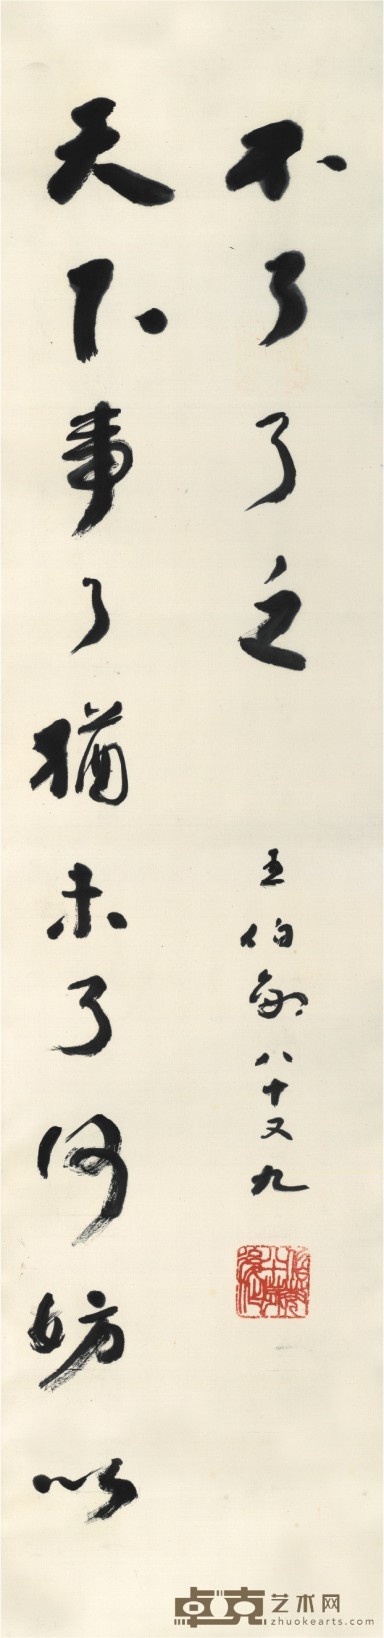 天下事了猶未了何妨以
不了了之
王伯敏八十又九
卓克艺术网
zhuokearts.com